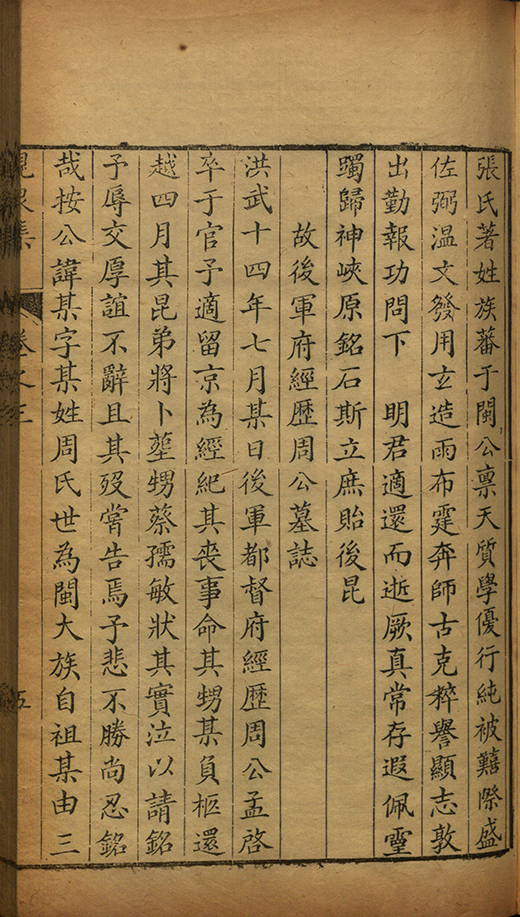 張氏著姓族蕃于閩公禀天質學優行純被囏際盛
佐弼温文發用玄造雨布霆奔師古克粹譽顯志敦
出勤報功問下　明君適還而逝厥真常存遐佩靈
躅歸神峽原銘石斯立庶貽後昆
故後軍府經歷周公墓誌
洪武十四年七月某日後軍都督府經歷周公孟啓
卒于官予適留京為經紀其喪事命其甥某負柩還
越四月其昆弟將卜塟甥蔡孺敏狀其實泣以請銘
予辱交厚誼不辭且其歿甞告焉予悲不勝尚忍銘
哉按公諱某字某姓周氏世為閩大族自祖某由三
集　卷之三　五